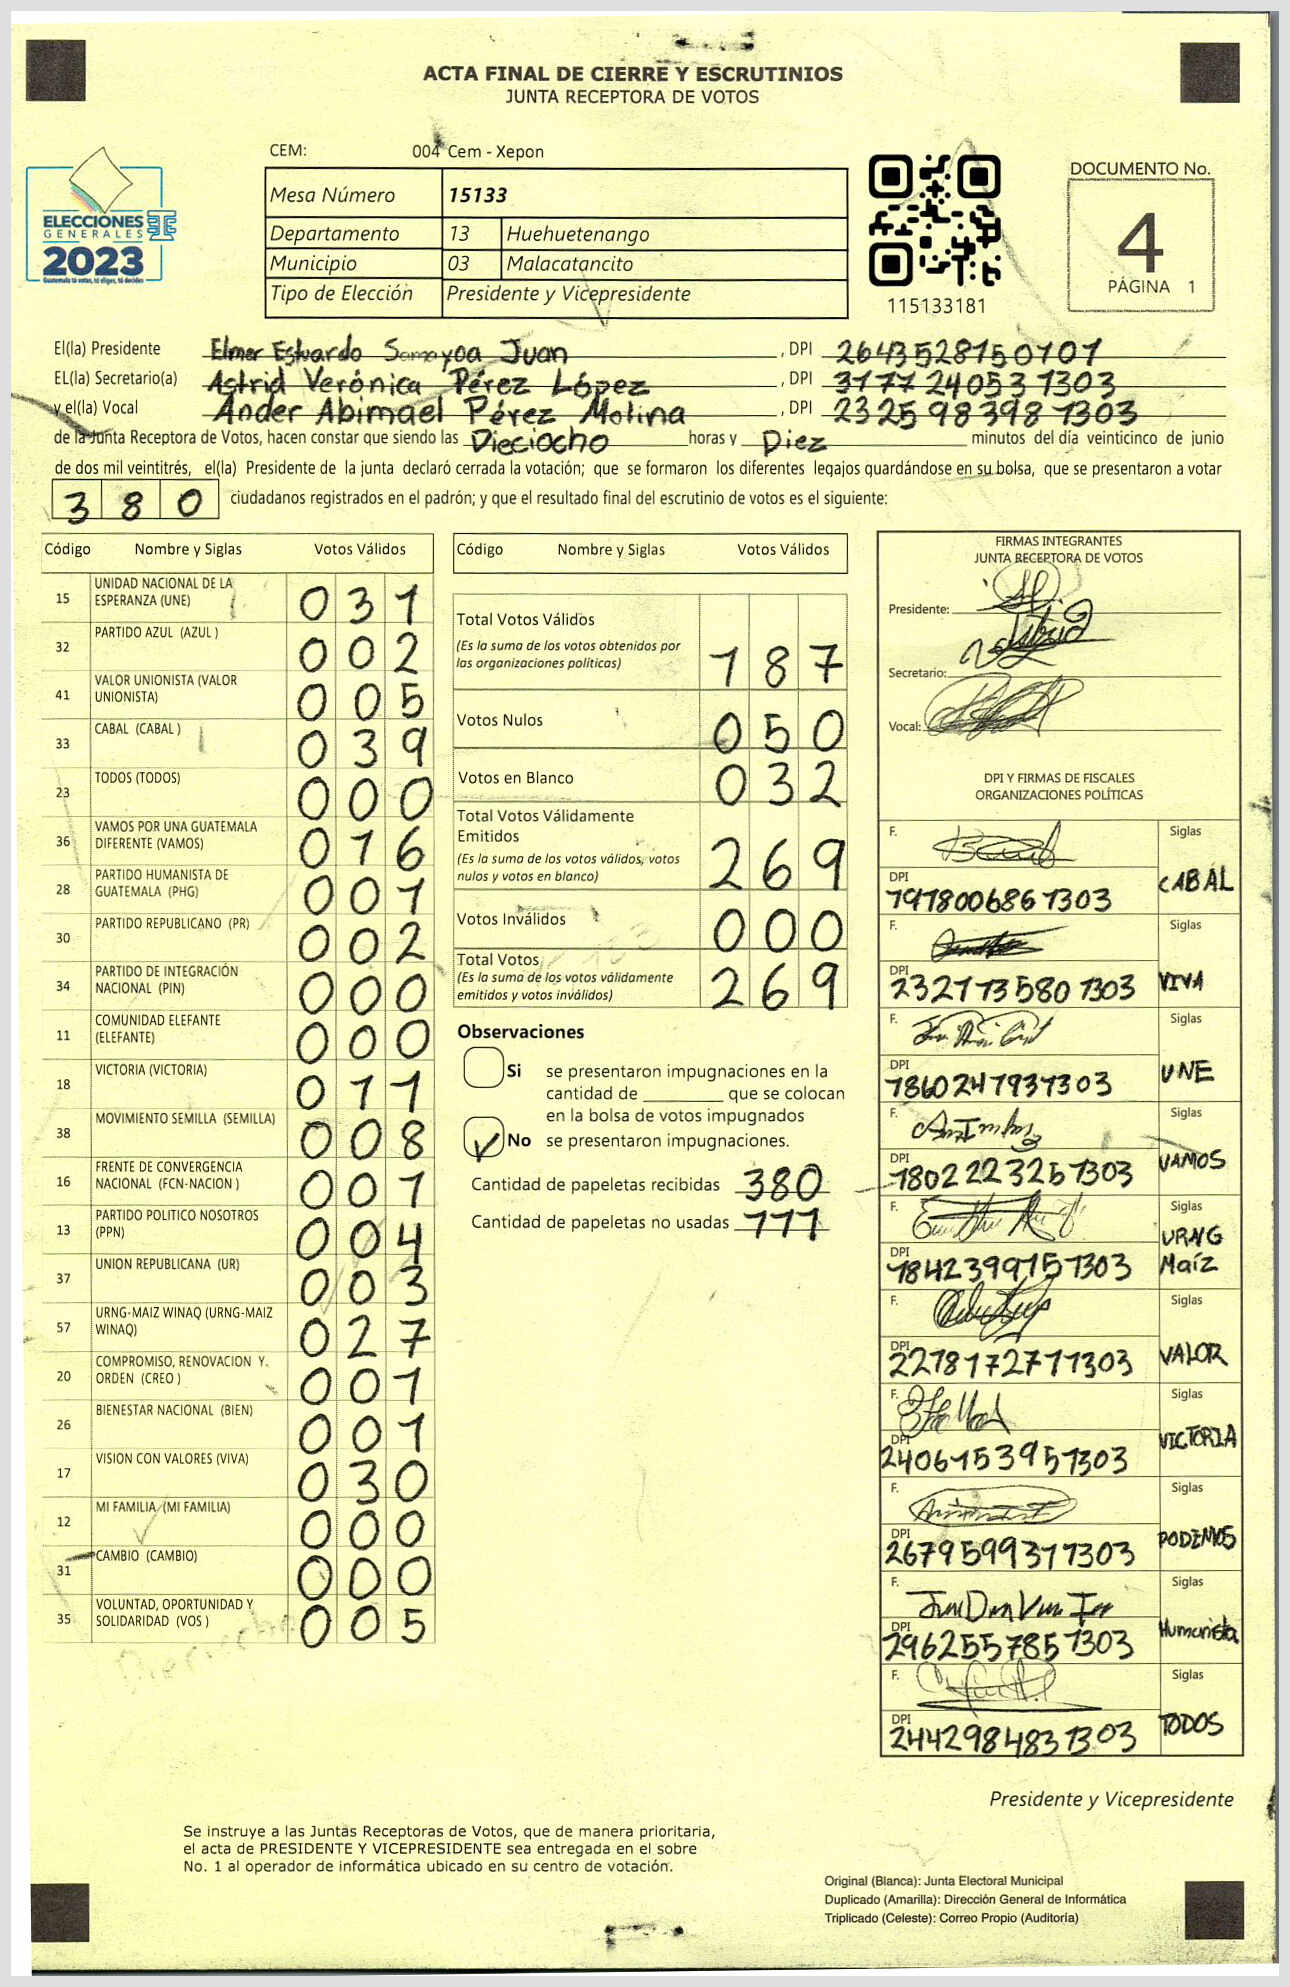 ACTA FINAL DE CIERRE Y ESCRUTINIOS
JUNTA RECEPTORA DE VOTOS
CEM: 004 Cem - Xepon
Mesa Número 15133
Departamento 13 Huehuetenango
Municipio 03 Malacatancito
Tipo de Elección Presidente y Vicepresidente
ELECCIONES
GENERALES
2023
115133181
DOCUMENTO No.
4
PÁGINA 1
El(la) Presidente Elmer Estuardo Samayoa Juan , DPI 2643528150101
EL(la) Secretario(a) Astrid Verónica Pérez López , DPI 3177240531303
y el(la) Vocal Ander Abimael Pérez Molina , DPI 2325983981303
de la Junta Receptora de Votos, hacen constar que siendo las Dieciocho horas y Diez minutos del día veinticinco de junio
de dos mil veintitrés, el(la) Presidente de la junta declaró cerrada la votación; que se formaron los diferentes legajos guardándose en su bolsa, que se presentaron a votar
380 ciudadanos registrados en el padrón; y que el resultado final del escrutinio de votos es el siguiente:
Código Nombre y Siglas Votos Válidos
15 UNIDAD NACIONAL DE LA ESPERANZA (UNE) 031
32 PARTIDO AZUL (AZUL ) 002
41 VALOR UNIONISTA (VALOR UNIONISTA) 005
33 CABAL (CABAL ) 039
23 TODOS (TODOS) 000
36 VAMOS POR UNA GUATEMALA DIFERENTE (VAMOS) 016
28 PARTIDO HUMANISTA DE GUATEMALA (PHG) 001
30 PARTIDO REPUBLICANO (PR) 002
34 PARTIDO DE INTEGRACIÓN NACIONAL (PIN) 000
11 COMUNIDAD ELEFANTE (ELEFANTE) 000
18 VICTORIA (VICTORIA) 011
38 MOVIMIENTO SEMILLA (SEMILLA) 008
16 FRENTE DE CONVERGENCIA NACIONAL (FCN-NACION ) 001
13 PARTIDO POLITICO NOSOTROS (PPN) 004
37 UNION REPUBLICANA (UR) 003
57 URNG-MAIZ WINAQ (URNG-MAIZ WINAQ) 027
20 COMPROMISO, RENOVACION Y ORDEN (CREO ) 001
26 BIENESTAR NACIONAL (BIEN) 001
17 VISION CON VALORES (VIVA) 030
12 MI FAMILIA (MI FAMILIA) 000
31 CAMBIO (CAMBIO) 000
35 VOLUNTAD, OPORTUNIDAD Y SOLIDARIDAD (VOS ) 005
Código Nombre y Siglas Votos Válidos
Total Votos Válidos
(Es la suma de los votos obtenidos por
las organizaciones políticas) 187
Votos Nulos 050
Votos en Blanco 032
Total Votos Válidamente
Emitidos
(Es la suma de los votos válidos, votos
nulos y votos en blanco) 269
Votos Inválidos 000
Total Votos
(Es la suma de los votos válidamente
emitidos y votos inválidos) 269
Observaciones
Si se presentaron impugnaciones en la
cantidad de ________ que se colocan
en la bolsa de votos impugnados
No se presentaron impugnaciones.
Cantidad de papeletas recibidas 380
Cantidad de papeletas no usadas 111
FIRMAS INTEGRANTES
JUNTA RECEPTORA DE VOTOS
Presidente:
Secretario:
Vocal:
DPI Y FIRMAS DE FISCALES
ORGANIZACIONES POLÍTICAS
F. Siglas
DPI 19178006861303 CABAL
F. Siglas
DPI 2321135801303 VIVA
F. Siglas
DPI 1860247931303 UNE
F. Siglas
DPI 1802223251303 VAMOS
F. Siglas
DPI 1842399151303 URNG Maíz
F. Siglas
DPI 2218172711303 VALOR
F. Siglas
DPI 2406153951303 VICTORIA
F. Siglas
DPI 2679599311303 PODEMOS
F. Siglas
DPI 2962557851303 Humanista
F. Siglas
DPI 2442984831303 TODOS
Presidente y Vicepresidente
Se instruye a las Juntas Receptoras de Votos, que de manera prioritaria,
el acta de PRESIDENTE Y VICEPRESIDENTE sea entregada en el sobre
No. 1 al operador de informática ubicado en su centro de votación.
Original (Blanca): Junta Electoral Municipal
Duplicado (Amarilla): Dirección General de Informática
Triplicado (Celeste): Correo Propio (Auditoría)